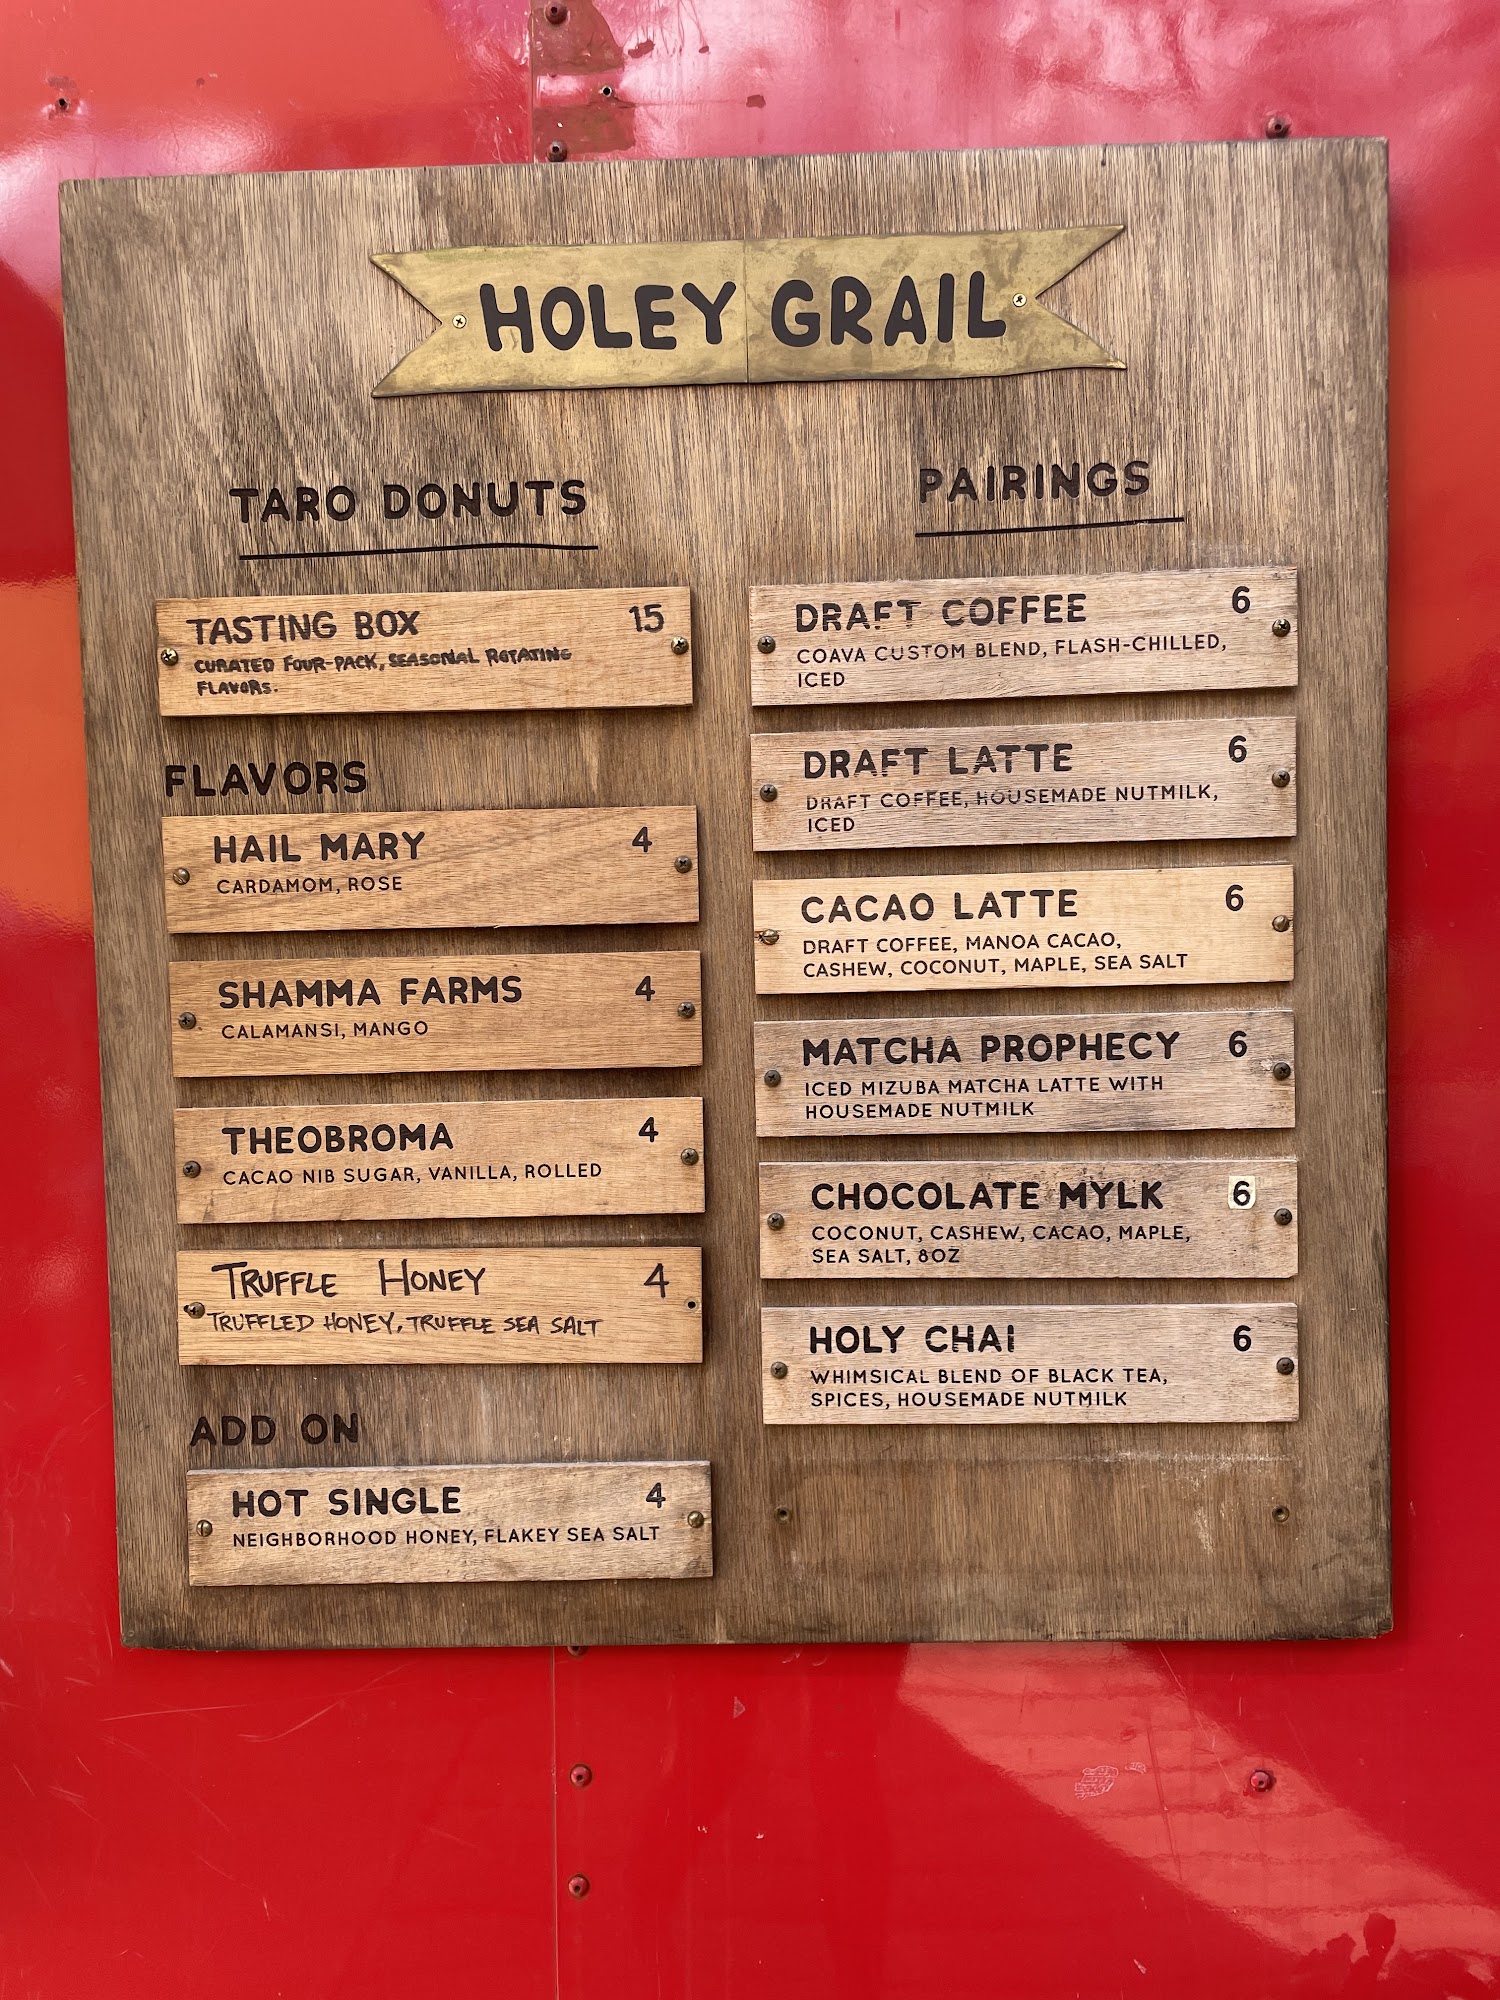 HOLEY GRAIL
TARO DONUTS
TASTING BOX 15
CURATED FOUR-PACK, SEASONAL ROTATING
FLAVORS.
FLAVORS
HAIL MARY 4
CARDAMOM, ROSE
SHAMMA FARMS 4
CALAMANSI, MANGO
THEOBROMA 4
CACAO NIB SUGAR, VANILLA, ROLLED
TRUFFLE HONEY 4
TRUFFLED HONEY, TRUFFLE SEA SALT
ADD ON
HOT SINGLE 4
NEIGHBORHOOD HONEY, FLAKEY SEA SALT
PAIRINGS
DRAFT COFFEE 6
COAVA CUSTOM BLEND, FLASH-CHILLED,
ICED
DRAFT LATTE 6
DRAFT COFFEE, HOUSEMADE NUTMILK,
ICED
CACAO LATTE 6
DRAFT COFFEE, MANOA CACAO,
CASHEW, COCONUT, MAPLE, SEA SALT
MATCHA PROPHECY 6
ICED MIZUBA MATCHA LATTE WITH
HOUSEMADE NUTMILK
CHOCOLATE MYLK 6
COCONUT, CASHEW, CACAO, MAPLE,
SEA SALT, 8OZ
HOLY CHAI 6
WHIMSICAL BLEND OF BLACK TEA,
SPICES, HOUSEMADE NUTMILK